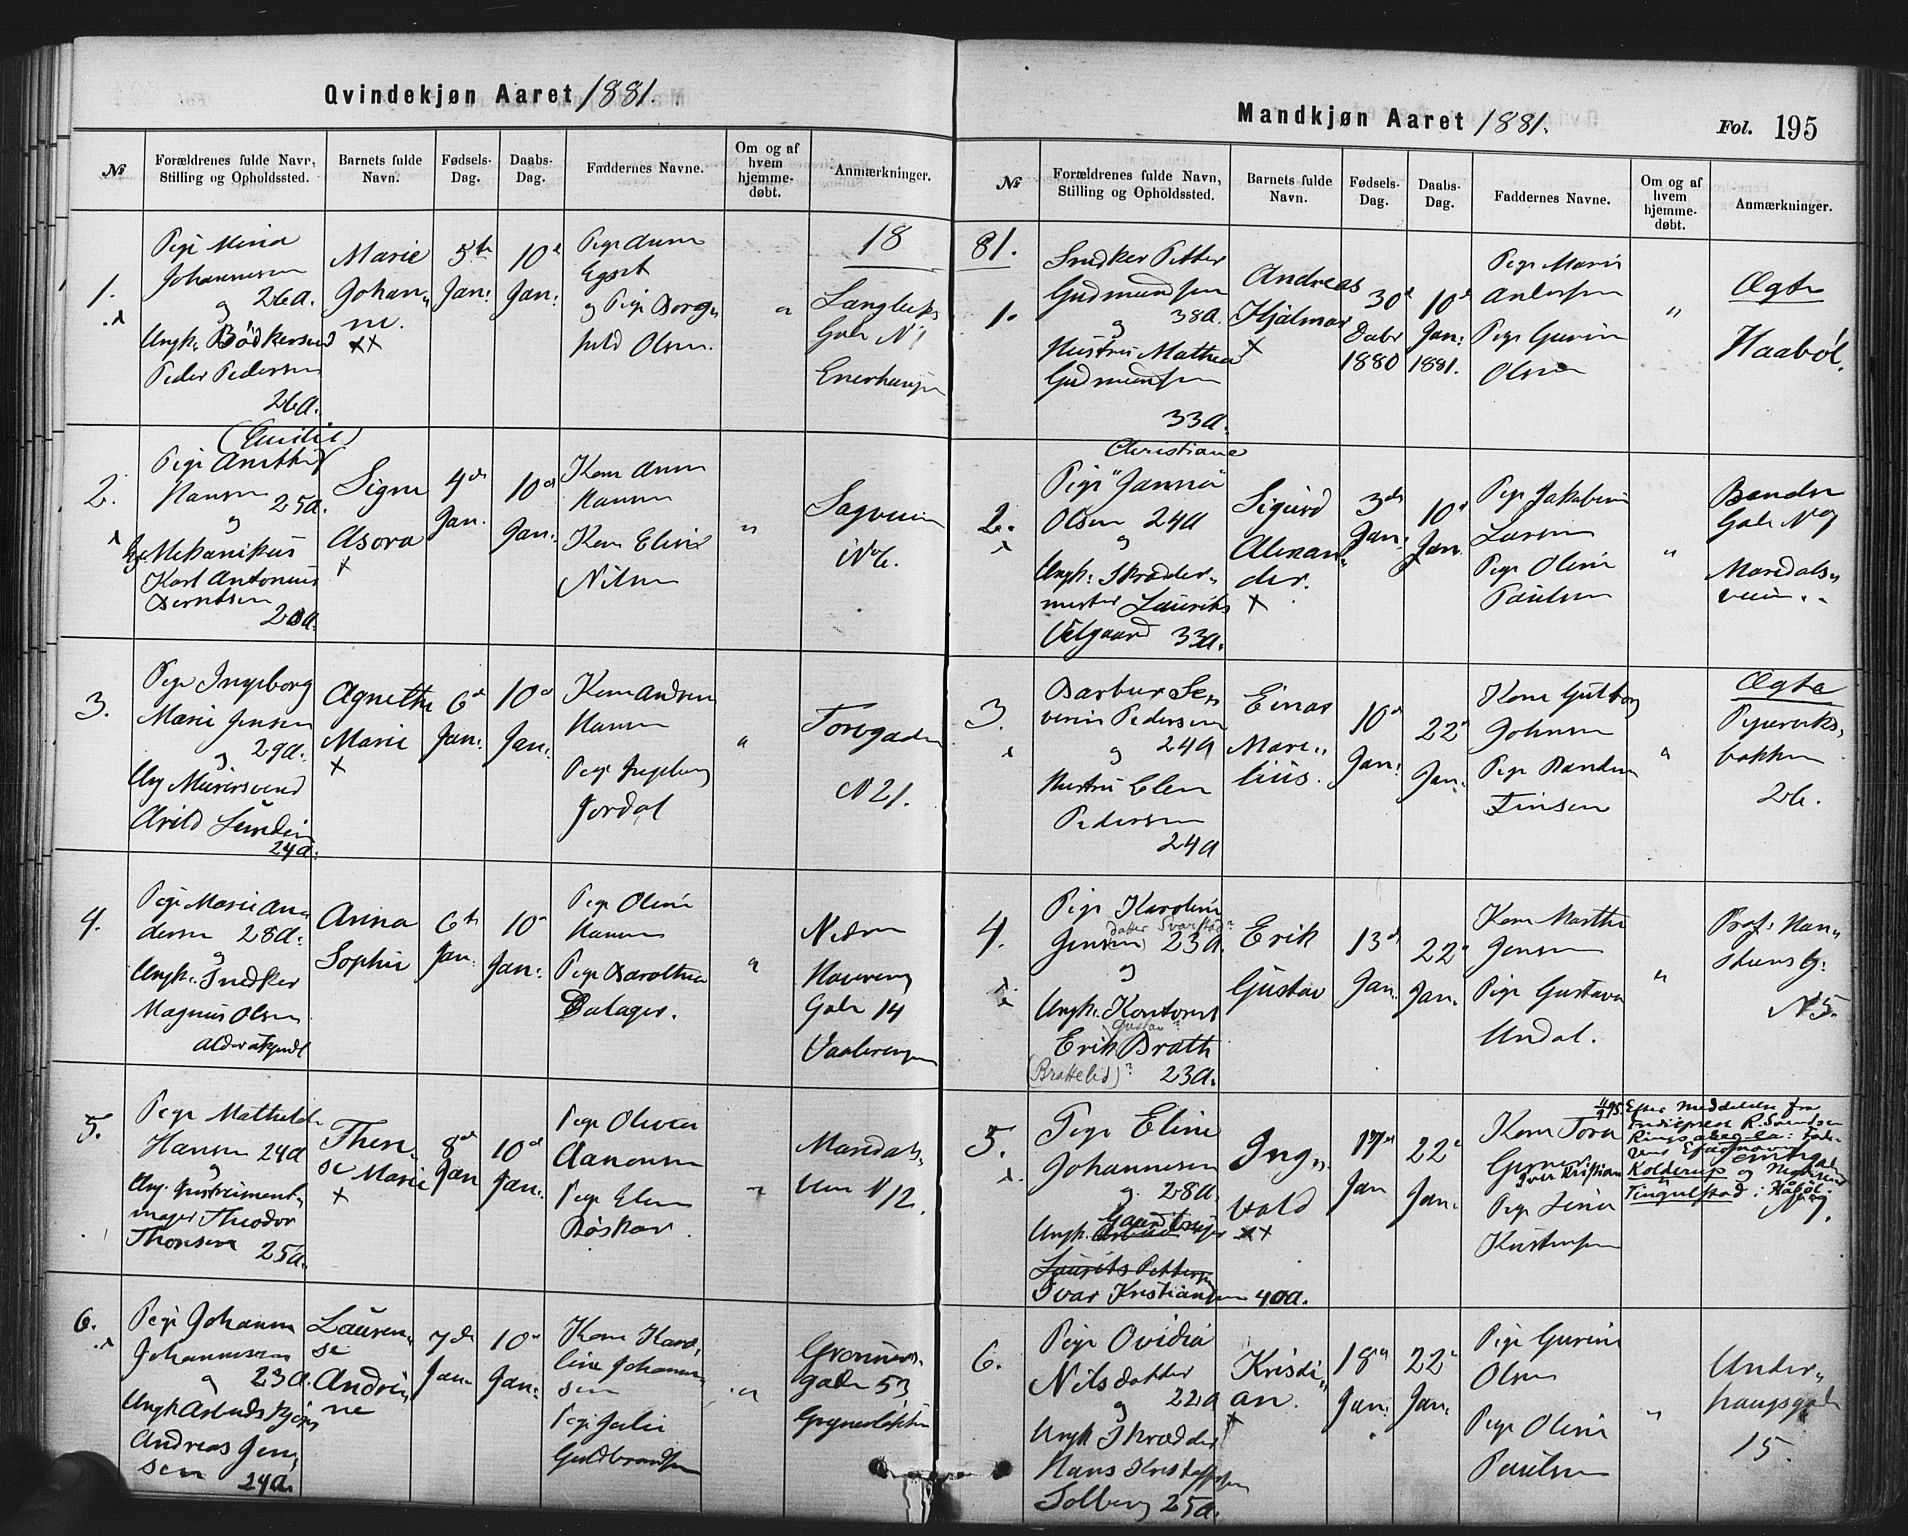 Qvindekjøn Aaret 1881.
№
Forældrenes fulde Navr, Stilling og Opholdssted.
Barnets fulde Navn.
Fødsels-Dag.
Daabs-Dag.
Faddernes Navne.
Om og af hvem hjemme-døbt.
Anmærkninger.
1.
Pige
Johannesen
og 26a.
Ungk. Bødkersvend
Peder Pedersen
26a.
Marie
Johan„
ne.
xx
5te
Jan:
10d
Jan:
Pige Anna
Egset
og Pige Borg„
hild Olsen.
"
18
Gade N 1
Enerhaugen
2.
(Emilie)
Pige Anette
Hansen 25a.
og
Mekanikus
Karl Antonius
Berntsen
Signe
Asora
x
4de
Jan.
10de
Jan:
Kone Anna
Hansen
Kone Eline
Nilsen
"
Sagveien
N 6.
3.
Pige Ingeborg
Marie Jensen
og 29a.
Ung Murersvend
Arild Lundin
24a.
Agnethe
Marie
x
6d
Jan:
10d
Jan:
Kone Andrea
Hansen
Pige Ingeborg
Jordal
"
Torvgaden
N 21.
4.
Pige Marie An„
dersen 28a.
og
Ungk. Snedker
Magnus Olsen
alder ukjendt
Anna
Sophie
6te
Jan.
10d
Jan:
Pige Oline
Hansen
Pige Dorothea
Dalager.
"
Nedre
Gade 14
Vaalerengen
5.
Pige Mathilde
Hansen 24a
og
Ung. Instrument„
mager Theodor
Thonsen 25a.
There„
se Marie
x
8de
Jan
10d
Jan:
Pige Olivia
Aanonsen
Pige Elen
"
Maridals„
veien N 12.
6.
Pige Johanne
Johannesen
og 23a.
Ungk Arbeids
Andreas Jen„
sen 24a.
Lauren„
se
Andri„
ne
7de
Jan.
10d
Jan:
Kone Karo„
line Johanne„
sen
Pige Julie
Guldbrandsen
"
Grønner„
gade 53
Grynerløkken
Mandkjøn Aaret 1881.
Fol. 195
№
Forældrenes fulde Navn, Stilling og Opholdssted.
Barnets fulde Navn.
Fødsels-Dag.
Daabs-Dag.
Faddernes Navne.
Om og af hvem hjemme-døbt.
Anmærkninger.
81.
1.
Snedker Petter
Gudmundsen
og 38a.
Hustru Mathea
Gudmundsen
33a.
Andreas
Hjalmar
x
30d
Dcbr
1880
10d
Jan:
1881.
Pige Marie
Andersen
Pige Gurine
Olsen
"
Ægte
Haabøl.
2.
Christiane
Pige "Janna"
Olsen 24a
og
Ungk. Skrædder„
mester Laurits
Velgaard 33a.
Sigurd
Alexan„
der.
x
3de
Jan:
10d
Jan.
Pige Jakobine
Larsen
Pige Oline
Paulsen
"
Gade No 9
Maridals„
veien.
3.
Barbur Se„
verin Pedersen
og 24a
Hustru Elen
Pedersen
24a
Einar
Mari„
lius.
10d
Jan:
22d
Jan:
Kone Gulborg
Johnsen
Pige
Finsen
"
Ægte
Piperviks„
bakken
26.
4.
Pige Karoline
datter Svarstad?
Jensen 23a.
og
Ungk. Kontorist
Gustav?
Erik Brath
(Brattelid)? 23a.
Erik
Gustav
13d
Jan.
22d
Jan:
Kone Marthe
Jensen
Pige Gustava
Undal.
"
Prof: Han„
steens G:
N 5.
5.
Pige Eline
Johannesen
og 28a.
Ungk.
Laurits Pettersen
Ivar Kristiansen 40a.
Ing„
vald
xx
17d
Jan
22d
Jan.
Kone Tora
Iver Kristian
Pige Lina
Kristensen
Efter Meddelelse fra
Indrepræst R. Svendsen
Kolderup og
Tingulstad i Håbøl.
6.
Pige Ovidia
Nilsdatter
og 22a
Ungk Skrædder
Hans Kristoffersen
Solberg 25a.
Kristi„
an.
x
18d
Jan:
22d
Jan:
Pige Gurine
Olsen
Pige Oline
Paulsen
"
Under„
haugsgade
15.